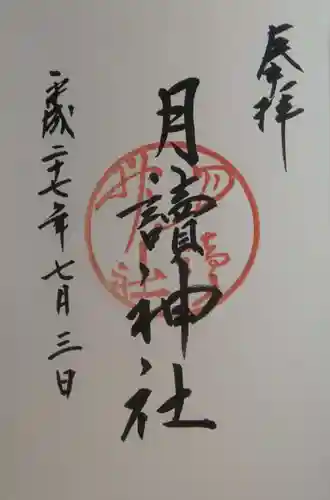 奉拝
月讀神社
月讀神社
平成二十七年七月三日